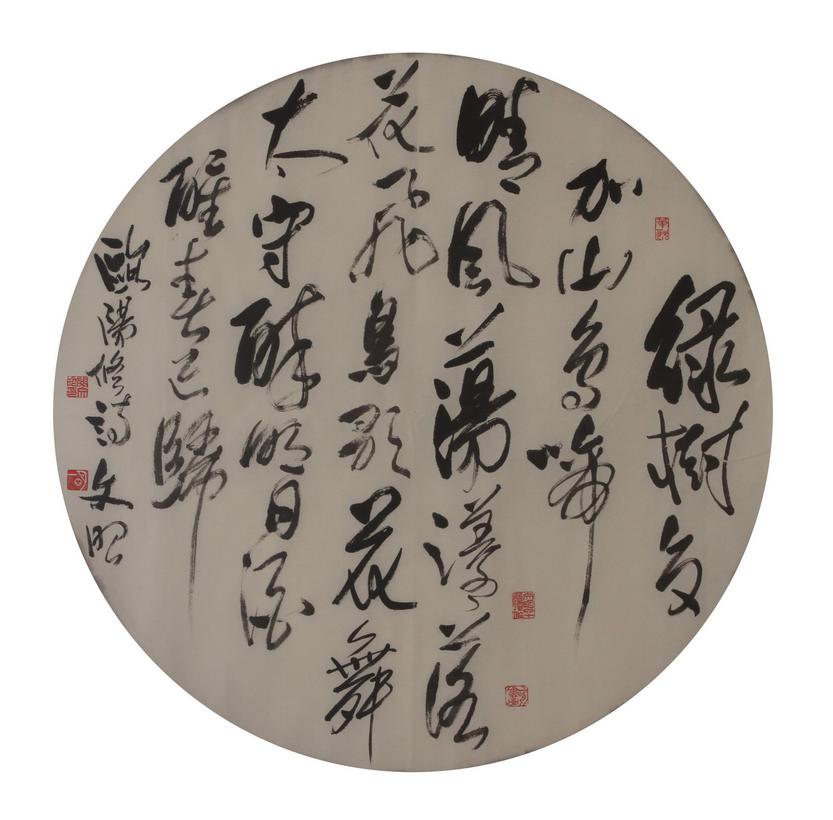 綠樹交
加山鳥啼
晴風蕩漾落
花飛鳥歌花舞
太守醉明日酒
醒春已歸
歐陽修詩 文